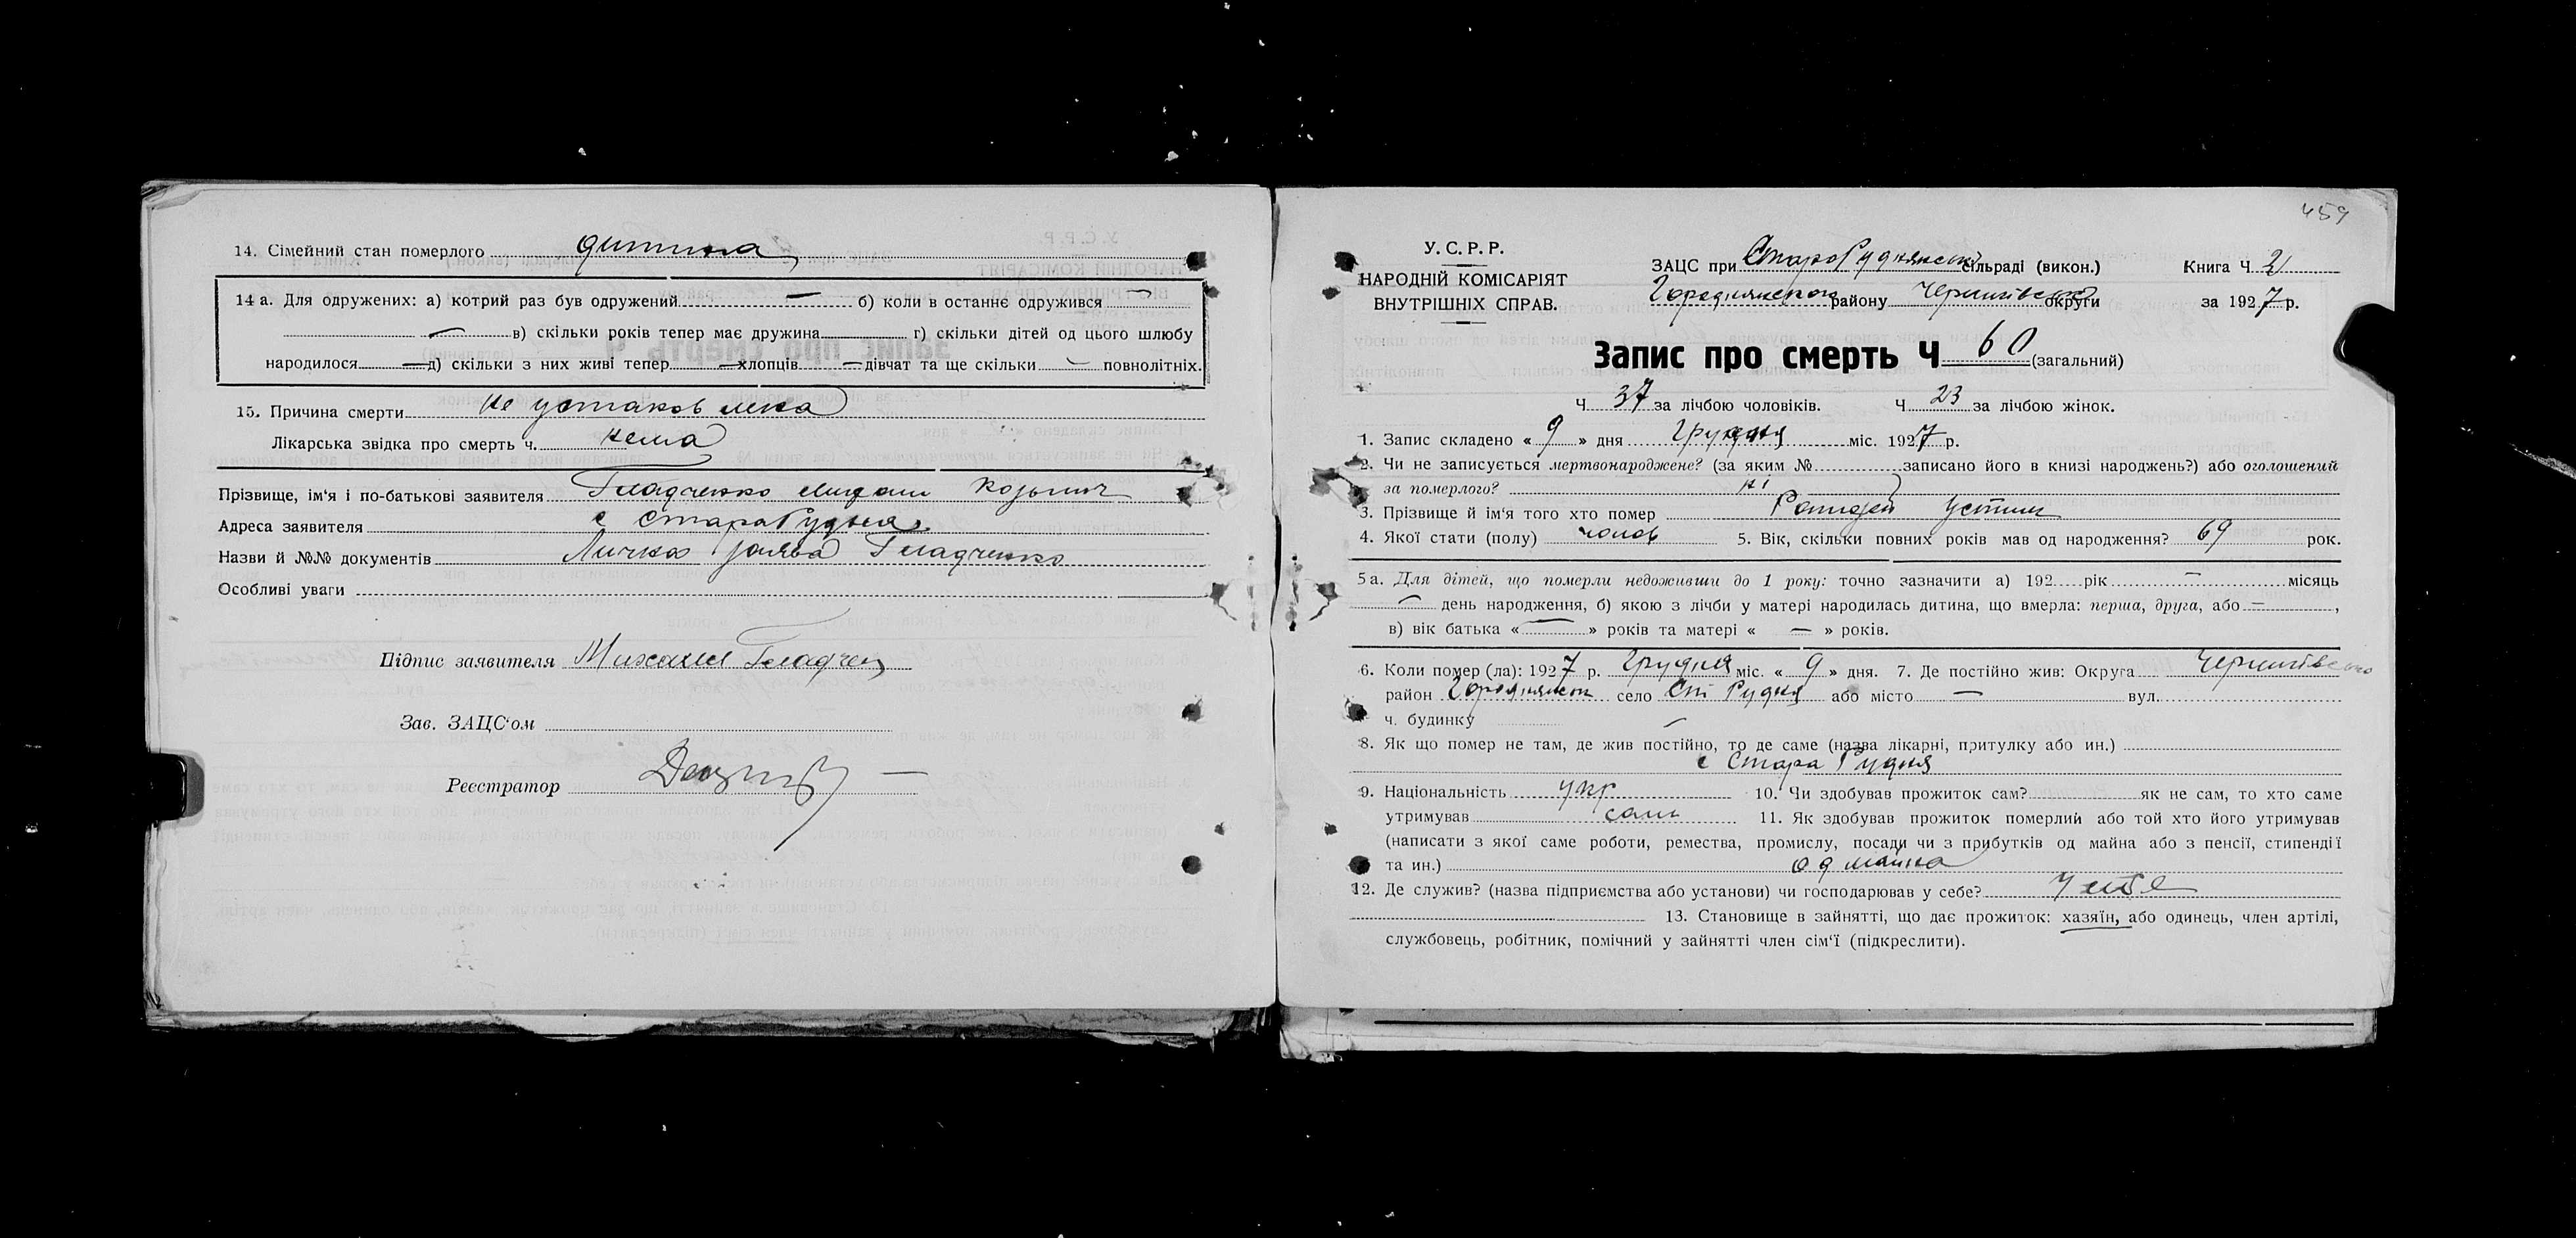 14. Сімейний стан померлого дитина
14 а. Для одружених: а) котрий раз був одружений — б) коли в останнє одружився —
— в) скільки років тепер має дружина г) скільки дітей од цього шлюбу
народилося — д) скільки з них живі тепер — хлопців — дівчат та ще скільки — повнолітніх.
15. Причина смерти не установлена
Лікарська звідка про смерть ч. нема
Прізвище, ім'я і по-батькові заявителя Гладченко Козьмич
Адреса заявителя с Стара Рудня
Назви й №№ документів Лична заява Гладченко
Особливі уваги
Підпис заявителя Михаил Гладчен
Зав. ЗАЦС'ом
Реєстратор
459
У. С. Р. Р.
НАРОДНІЙ КОМІСАРІЯТ
ВНУТРІШНІХ СПРАВ.
ЗАЦС при СтароРуднянській сільраді (викон.) Книга Ч 2
Городнянського району Чернігівської округи за 1927 р.
Запис про смерть Ч 60 (загальний)
Ч 37 за лічбою чоловіків. Ч 23 за лічбою жінок.
1. Запис складено « 9 » дня Грудня міс. 1927 р.
2. Чи не записується мертвонароджене? (за яким № записано його в книзі народжень?) або оголошений
за померлого? ні
3. Прізвище й ім'я того хто помер Устин
4. Якої стати (полу) чолов 5. Вік, скільки повних років мав од народження? 69 рок.
5 а. Для дітей, що померли недоживши до 1 року: точно зазначити а) 192 рік — місяць
— день народження, б) якою з лічби у матері народилась дитина, що вмерла: перша, друга, або —,
в) вік батька « — » років та матері « — » років.
6. Коли помер (ла): 1927 р. Грудня міс. « 9 » дня. 7. Де постійно жив: Округа Чернігівсько
район Городнянськ село Ст Рудня або місто — вул.
ч. будинку —
8. Як що помер не там, де жив постійно, то де саме (назва лікарні, притулку або ин.)
с Стара Рудня
9. Національність укр 10. Чи здобував прожиток сам? як не сам, то хто саме
утримував сам 11. Як здобував прожиток померлий або той хто його утримував
(написати з якої саме роботи, ремества, промислу, посади чи з прибутків од майна або з пенсії, стипендії
та ин.) од майна
12. Де служив? (назва підприємства або установи) чи господарював у себе? У себе
13. Становище в зайнятті, що дає прожиток: хазяїн, або одинець, член артілі,
службовець, робітник, помічний у зайнятті член сім'ї (підкреслити).